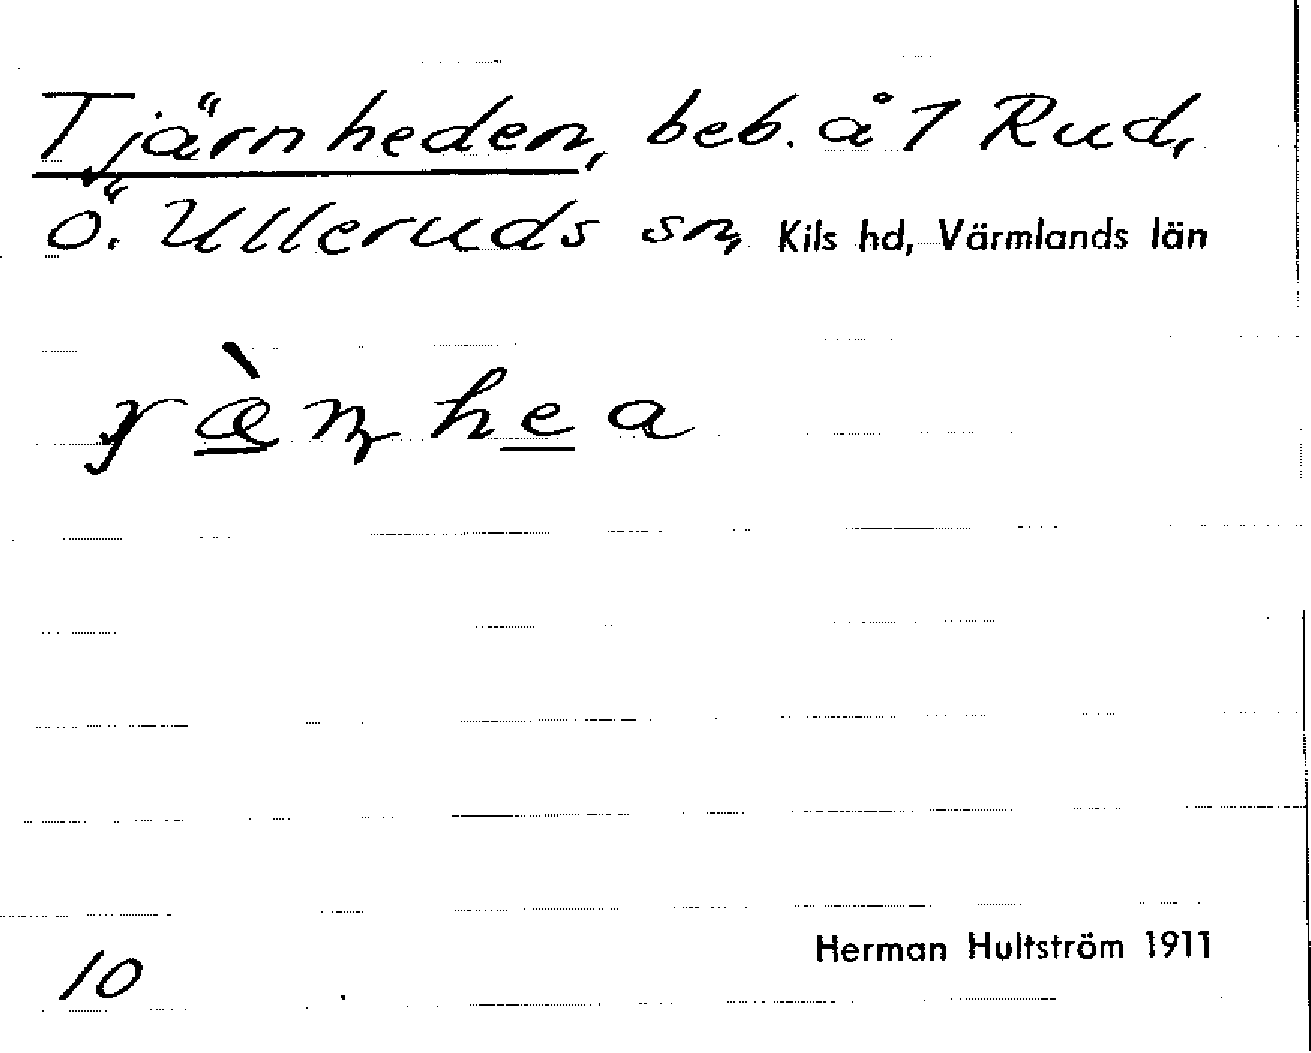 Tjärnheden, beb. å 1 Rud,
Ö. Ulleruds sn, Kils hd, Värmlands län
Herman Hultström 1911
10